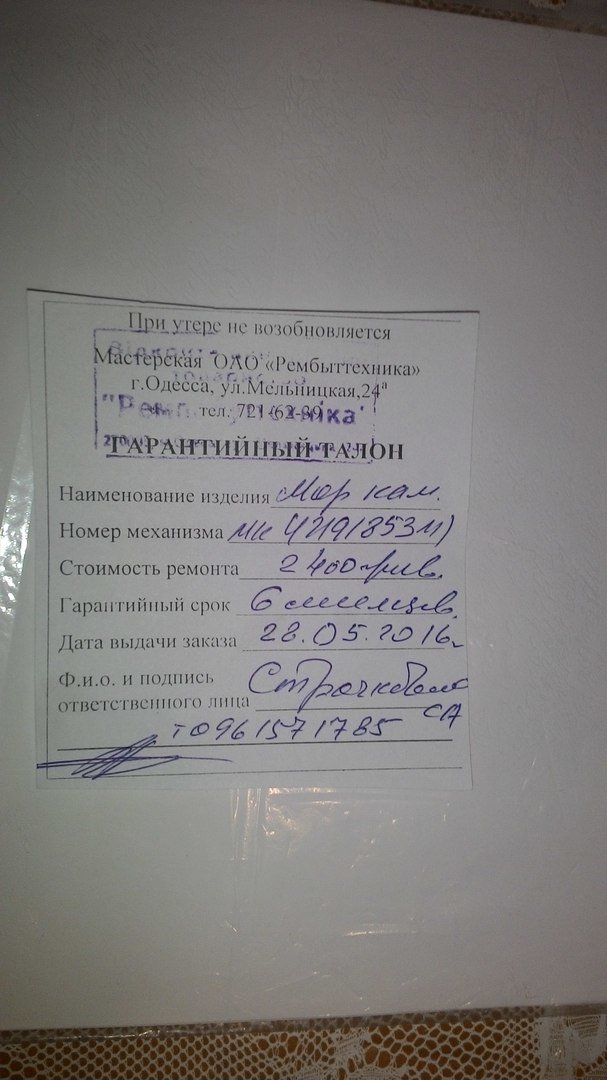 При утере не возобновляется
Мастерская ОАО «Рембыттехника»
г.Одесса, ул.Мельницкая,24а
тел. 721-62-89
ГАРАНТИЙНЫЙ ТАЛОН
Наименование изделия Мор кам.
Номер механизма МК
Стоимость ремонта 2400 грив.
Гарантийный срок 6 месяцев.
Дата выдачи заказа 28.05.2016г
Ф.и.о. и подпись
ответственного лица
СА
т0961571785